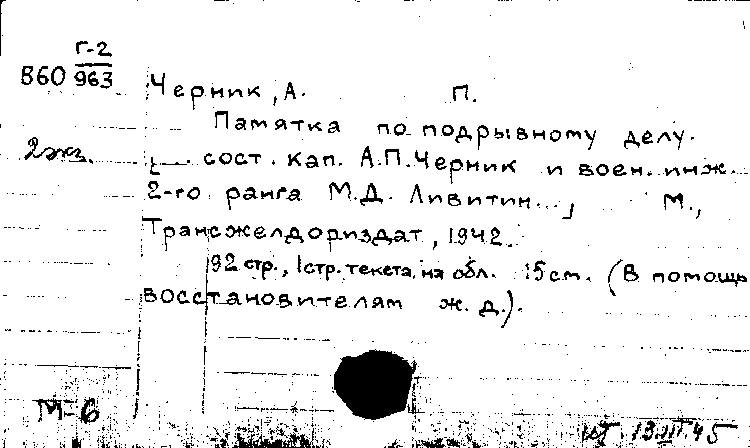 Г-2
В60 963
Черник, А. П.
Памятка по подрывному делу.
2экз.
[... сост. кап. А.П.Черник и воен. инж.
2-го ранга М.Д. Ливитин...] М.,
Трансжелдориздат, 1942.
92 стр., 1 стр. текста на обл. 15см. (В помощь
восстановителям ж. д.).
М-6
13 III 45